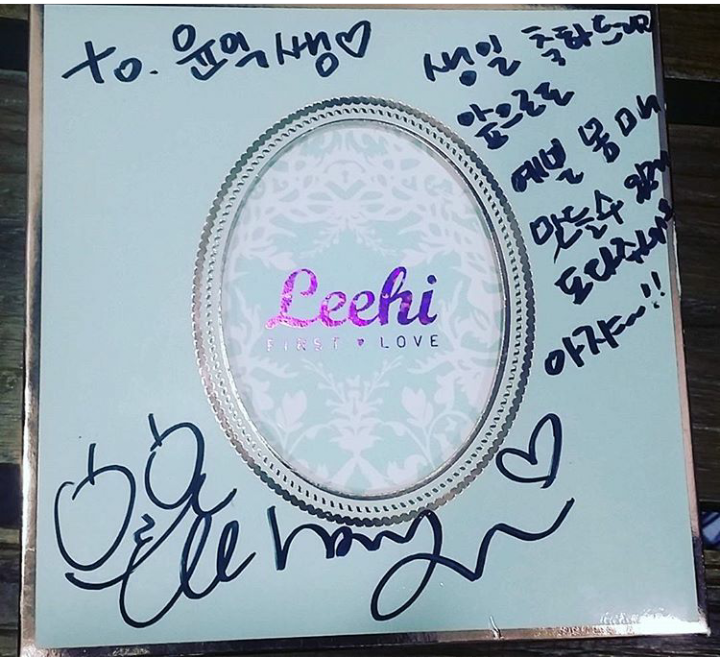 to. 윤억생♡
생일 축하드려
앞으로도
예쁜 몸매
만들수 있게
도와주세요
아자~!!
Leehi
FIRST ♥ LOVE